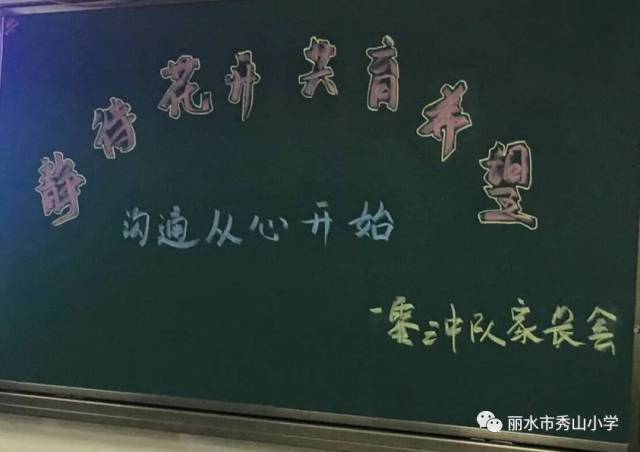 静待花开 共育希望
沟通从心开始
一零二中队家长会
丽水市秀山小学